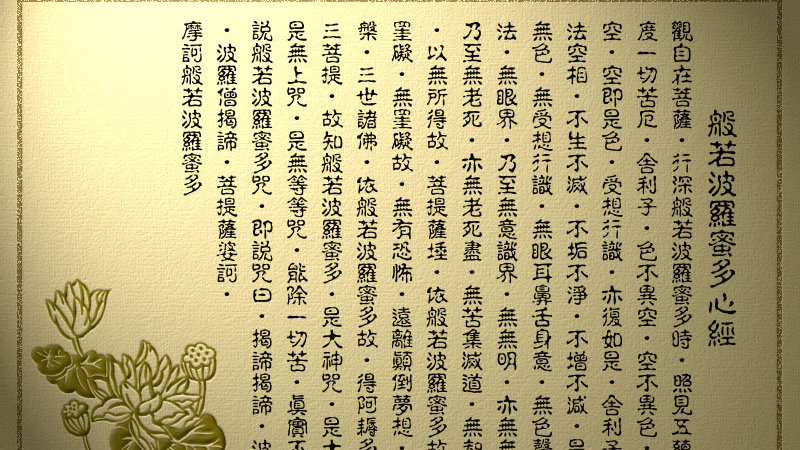 般若波羅蜜多心經
觀自在菩薩・行深般若波羅蜜多時・照見五蘊
度一切苦厄・舍利子・色不異空・空不異色・
空・空即是色・受想行識・亦復如是・舍利子
法空相・不生不滅・不垢不淨・不增不減・是
無色・無受想行識・無眼耳鼻舌身意・無色聲
法・無眼界・乃至無意識界・無無明・亦無無
乃至無老死・亦無老死盡・無苦集滅道・無智
・以無所得故・菩提薩埵・依般若波羅蜜多故
罣礙・無罣礙故・無有恐怖・遠離顛倒夢想・
槃・三世諸佛・依般若波羅蜜多故・得阿耨多
三菩提・故知般若波羅蜜多・是大神咒・是大
是無上咒・是無等等咒・能除一切苦・真實不
說般若波羅蜜多咒・即說咒曰・揭諦揭諦・波
・波羅僧揭諦・菩提薩婆訶・
摩訶般若波羅蜜多